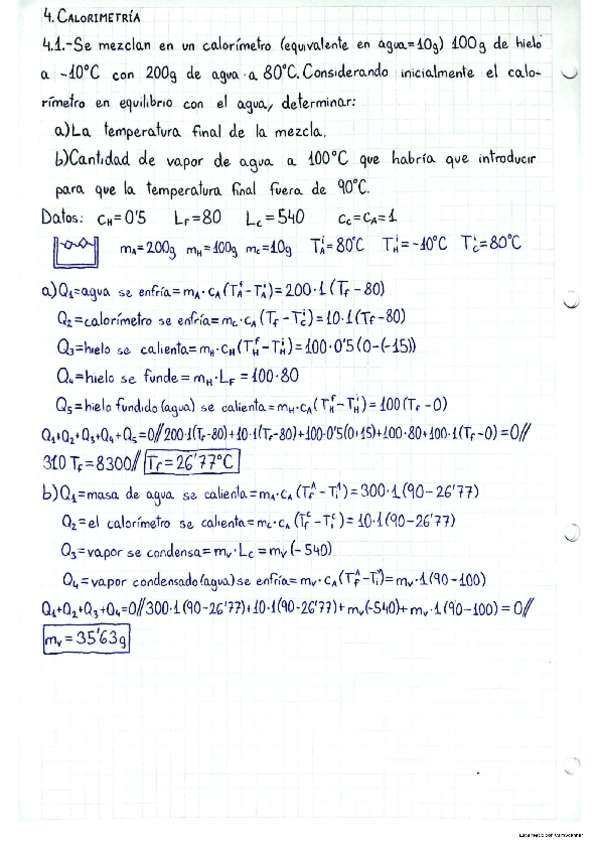 4. CALORIMETRÍA
4.1.-Se mezclan en un calorímetro (equivalente en agua=10g) 100g de hielo
a -10°C con 200g de agua a 80°C. Considerando inicialmente el calo-
rímetro en equilibrio con el agua, determinar:
a) La temperatura final de la mezcla.
b) Cantidad de vapor de agua a 100°C que habría que introducir
para que la temperatura final fuera de 90°C.
Datos: C_H=0'5 L_F=80 L_C=540 C_C=C_A=1
m_A=200g m_H=100g m_C=10g T_A^i=80°C T_H^i=-10°C T_C^i=80°C
a) Q₁=agua se enfría=m_A·C_A(T_A^f-T_A^i)=200·1(T_F-80)
Q₂=calorímetro se enfría=m_C·C_A(T_F-T_C^i)=10·1(T_F-80)
Q₃=hielo se calienta=m_H·C_H(T_H^f-T_H^i)=100·0'5(0-(-15))
Q₄=hielo se funde=m_H·L_F=100·80
Q₅=hielo fundido(agua) se calienta=m_H·C_A(T_H^f-T_H^i)=100(T_F-0)
Q₁+Q₂+Q₃+Q₄+Q₅=0//200·1(T_F-80)+10·1(T_F-80)+100·0'5(0+15)+100·80+100·1(T_F-0)=0//
310 T_F=8300// T_F=26'77°C
b) Q₁=masa de agua se calienta=m_A·C_A(T_F^A-T_i^A)=300·1(90-26'77)
Q₂=el calorímetro se calienta=m_C·C_A(T_F^C-T_i^C)=10·1(90-26'77)
Q₃=vapor se condensa=m_V·L_C=m_V(-540)
Q₄=vapor condensado(agua) se enfría=m_V·C_A(T_F^A-T_i^V)=m_V·1(90-100)
Q₁+Q₂+Q₃+Q₄=0//300·1(90-26'77)+10·1(90-26'77)+m_V(-540)+m_V·1(90-100)=0//
m_V=35'63g